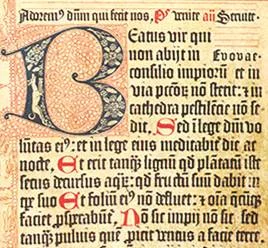 Adorem⁹ dūm qui fecit nos, P̄s venite añ Servite.
Beatus vir qui
non abijt in Evovae
consilio impioꝝ et in
via pc̄coꝝ nō stetit: ⁊ in
cathedra pestilēcie nō se-
dit. Sed ī lege dn̄i vo-
lūtas ei⁹: et in lege eius meditabit̄ die ac
nocte. Et erit tanqȝ lignū qđ plātatū ē
secus decursus aqꝝ: qđ fructū suū dabit ī
tꝑe suo Et foliū ei⁹ nō defluet: ⁊ oīa q̄cūqȝ
faciet ꝓsꝑabūt̄. Nō sic impij nō sic: sed
tanqȝ pulvis quē ꝓicit ventus a facie terre.